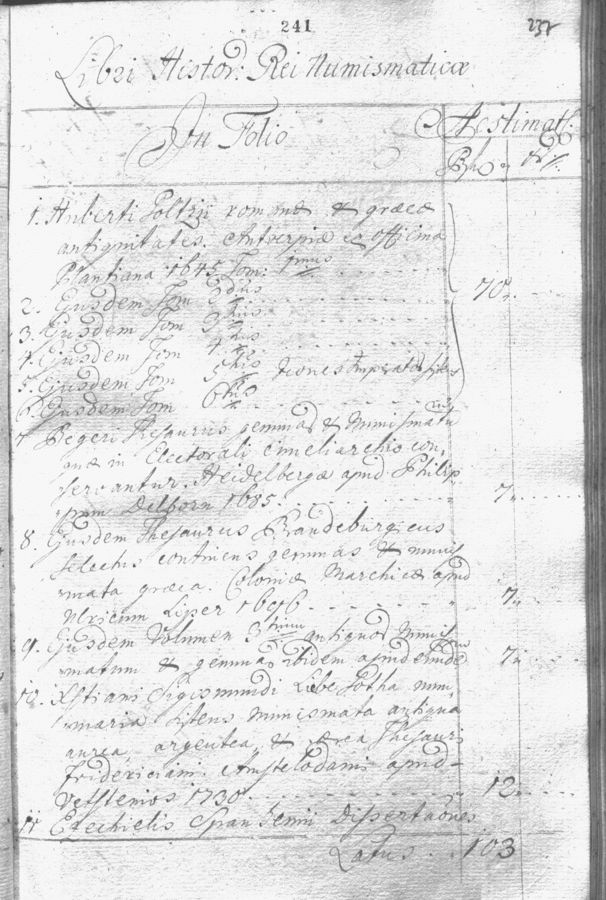 241
237
Libri Histor: Rei Numismaticæ
In Folio
Aestimatt:
Rh
1. Huberti Goltzii romanæ & græcæ
antiquitatis. Antverpiæ ex officina
Plantiana 1645. Tom: 1mus
2. Ejusdem Tom 2dus
3. Ejusdem Tom 3tius
4. Ejusdem Tom 4tus
5. Ejusdem Tom 5tus
6. Ejusdem Tom 6tus
70.
7 Begeri Thesaurus gemmas & Numismata
quæ in Electorali Cimeliarchio con,
servantur. Heidelbergæ apud Philip
pum Delborn 1685. 7
8. Ejusdem Thesaurus Brandeburgicus
Selectus continens gemmas & numis
mata græca. Coloniæ Marchicæ apud
Ulricum Liper 1696 7
9. Ejusdem Volumen 3tium antiquor Numis
matum & gemmas ibidem apud eunde 7
10. Xstiani Sigismundi Liebe Gotha num,
maria sistens Numismata antiqua
aurea, argentea, & ærea Thesauri
Fridericiani. Amstelodami apud
Vetstenios 1730 12
11 Ezechielis Spanhemii Dissertaones
Latus . . 103